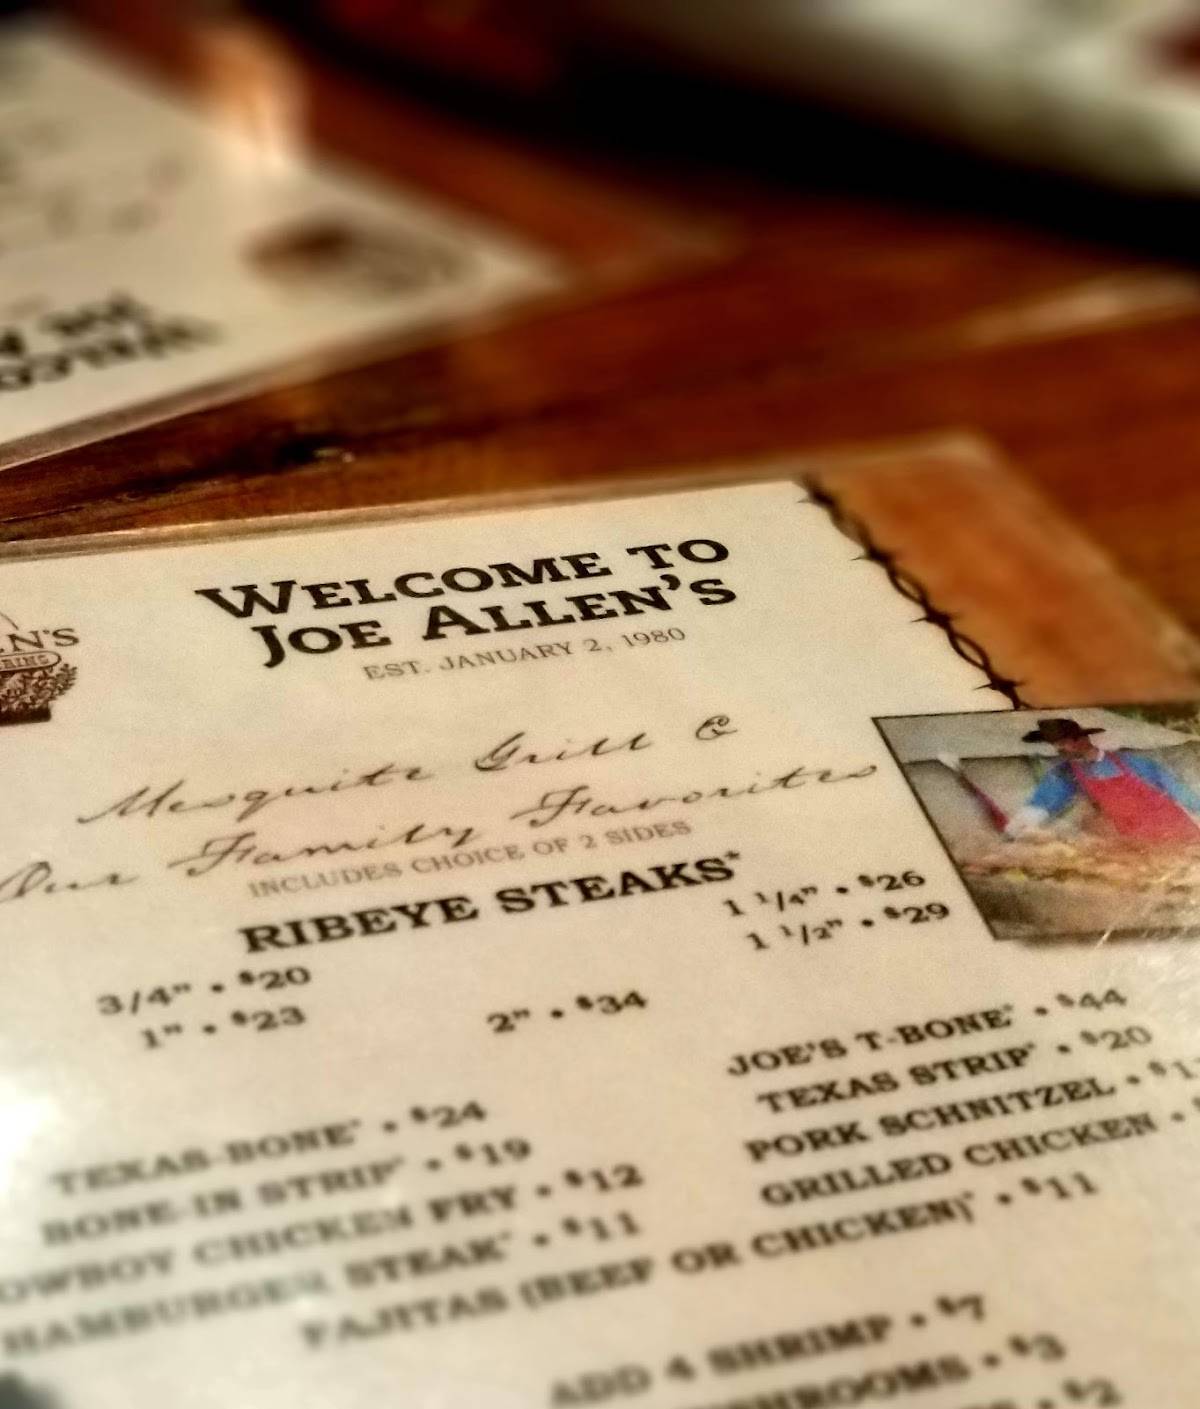 WELCOME TO
JOE ALLEN'S
EST. JANUARY 2, 1980
Mesquite Grill &
Our Family Favorites
INCLUDES CHOICE OF 2 SIDES
RIBEYE STEAKS*
3/4" • $20
1" • $23
2" • $34
1 1/4" • $26
1 1/2" • $29
TEXAS-BONE* • $24
BONE-IN STRIP* • $19
OWBOY CHICKEN FRY • $12
HAMBURGER STEAK* • $11
JOE'S T-BONE* • $44
TEXAS STRIP* • $20
PORK SCHNITZEL • $1
GRILLED CHICKEN • $
FAJITAS (BEEF OR CHICKEN)* • $11
ADD 4 SHRIMP • $7
SHROOMS • $3
• $2
EN'S
WELCO
JOE A